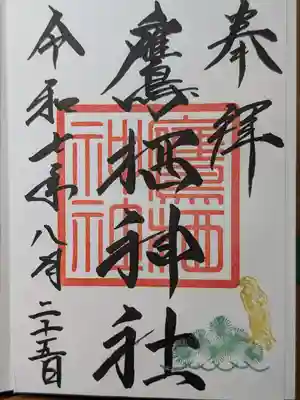 奉拝
鷹栖神社
鷹栖
神社
令和七年八月二十五日